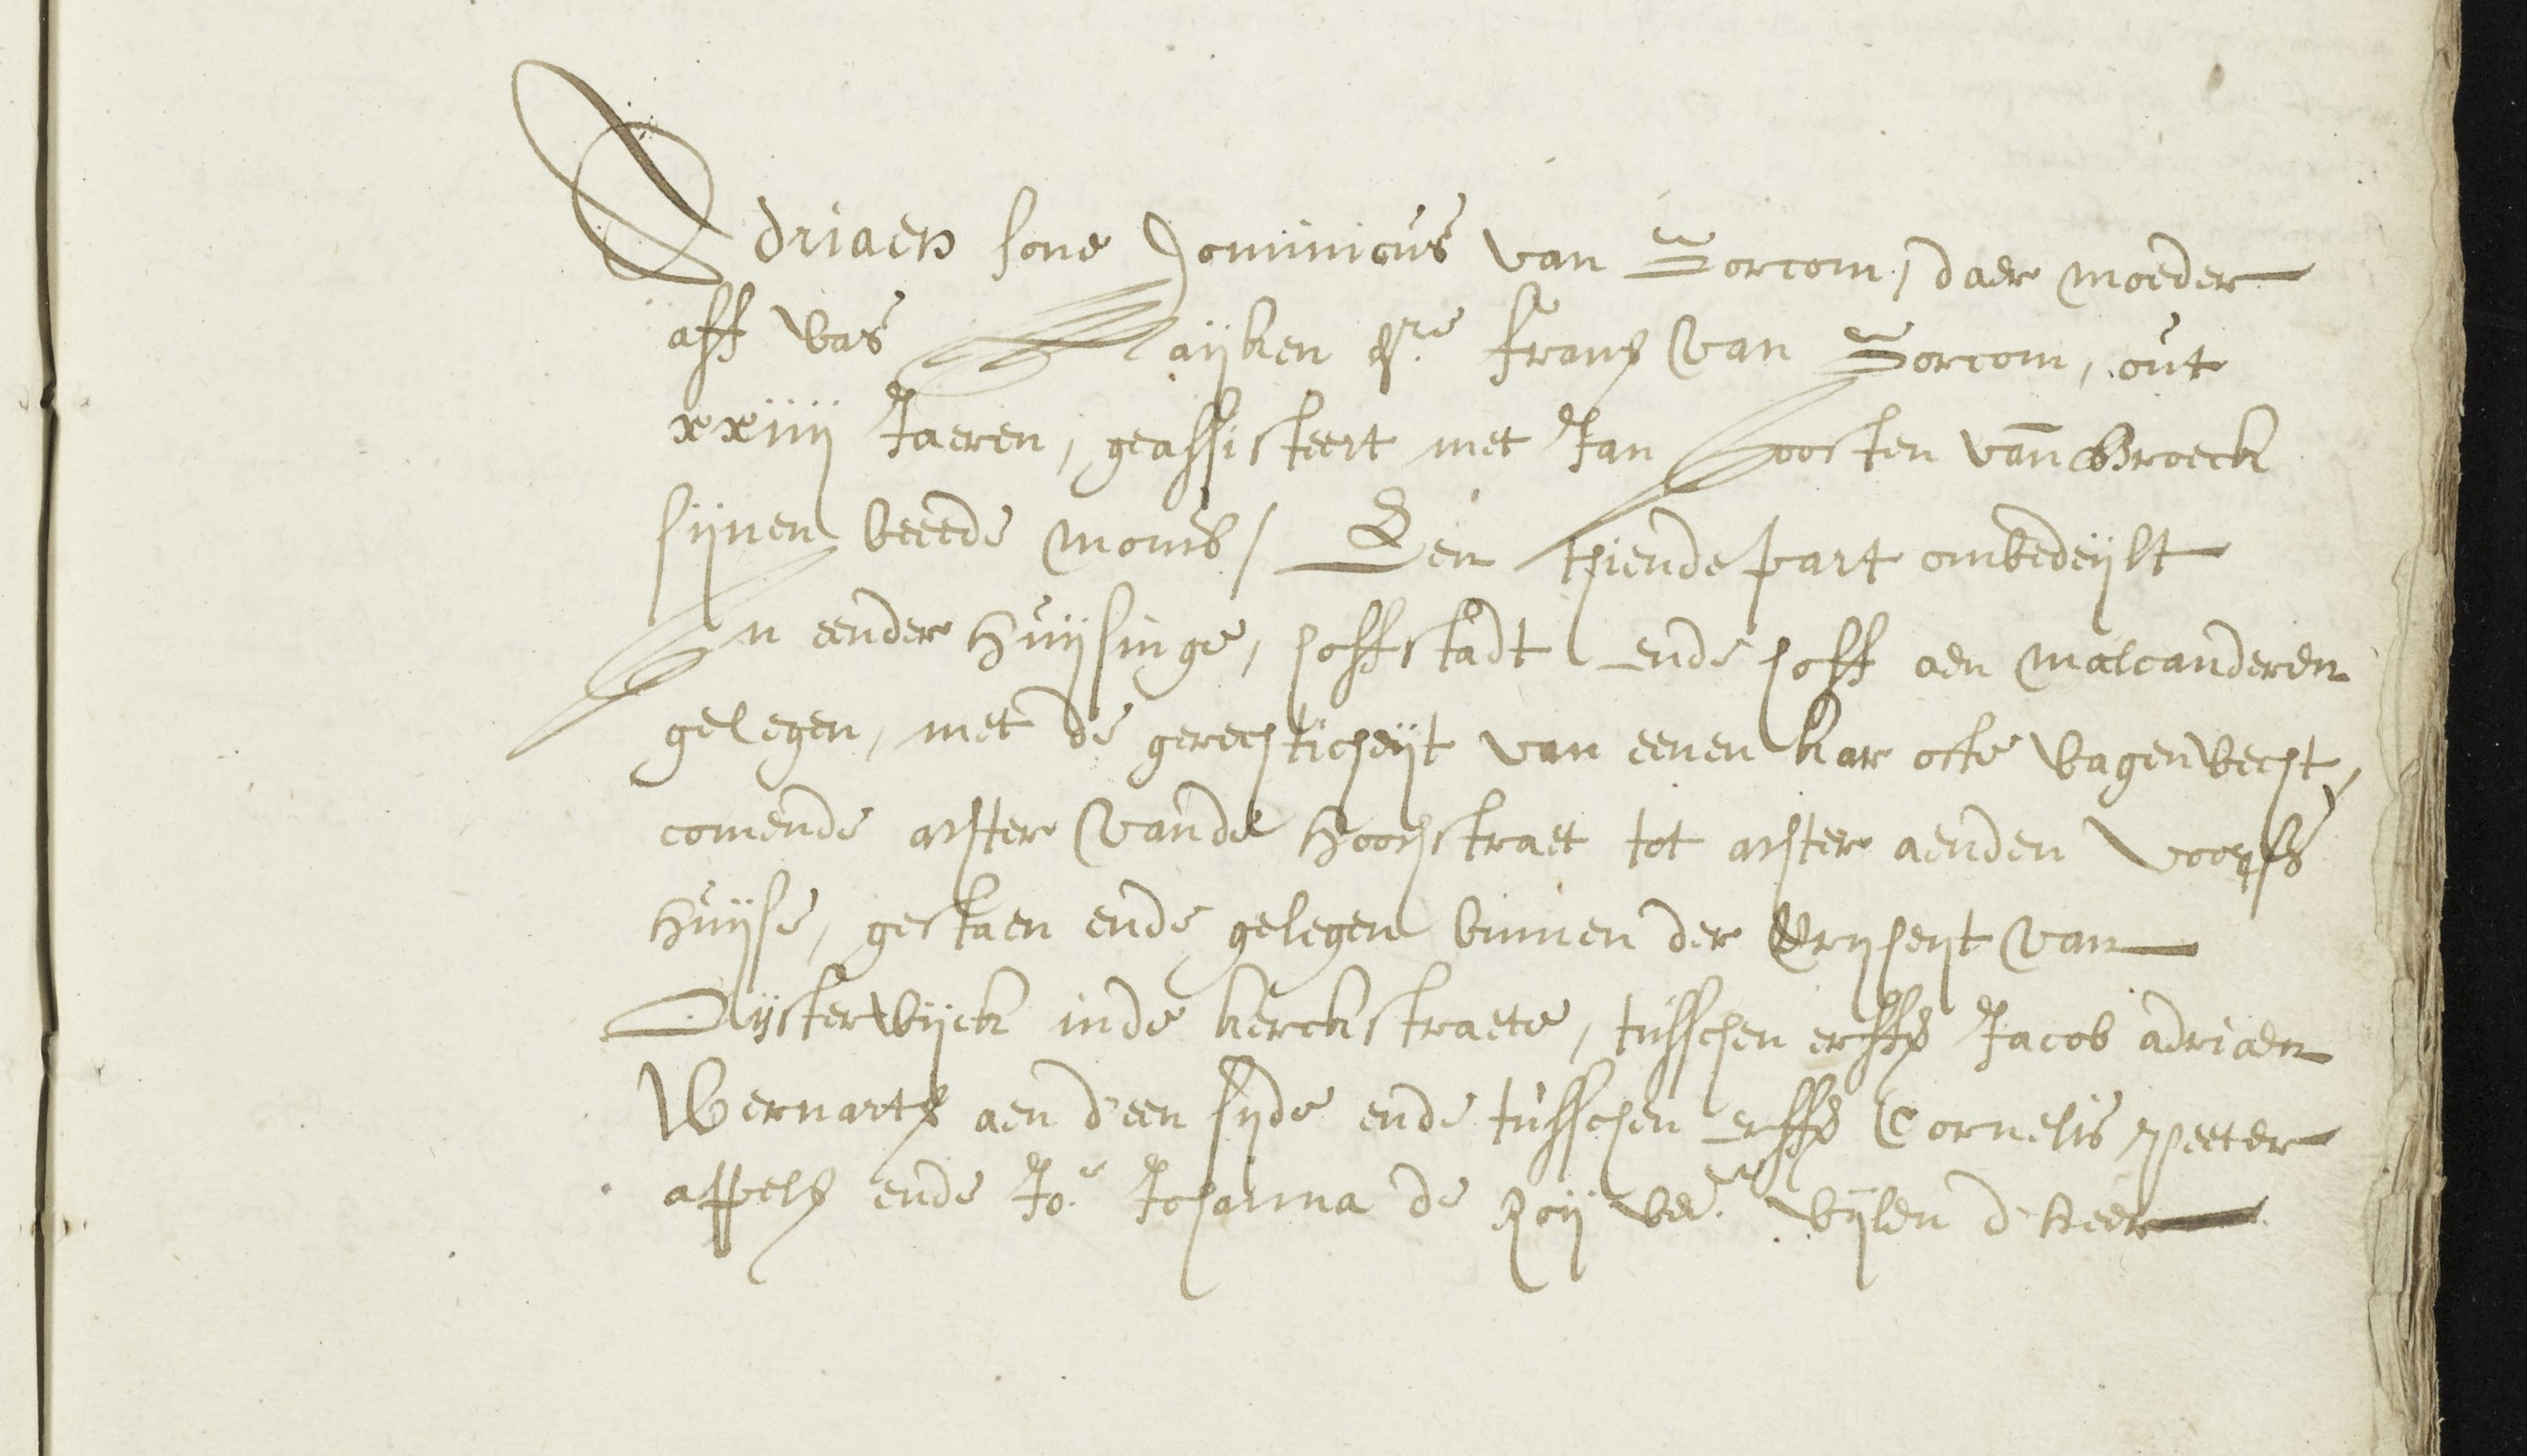 Adriaen sone Dominicus van Gorcom, daer moeder
aff was Maijken dr.e Frans van Gorcom, out
xxiiij Jaeren, geassisteert met Jan Joosten vān Broeck
sijnen beede momb/ Een thiende part onbedeijlt
In eender huijsinge, hoffstadt ende hoff aen malcanderen
gelegen, met de gerechticheijt van eenen kar ofte wagenwecht,
comende achter vande hoochstraet tot achter aenden voors
huijse, gestaen ende gelegen binnen der Vrijheijt van
Oijsterwijck inde kerckstraete, tusschen erffs Jacob adriaen
Wernarts aen d'een sijde ende tusschen erffs Cornelis Peeter
appels ende Jo.e Johanna de Roij we.e wijlen d'heer